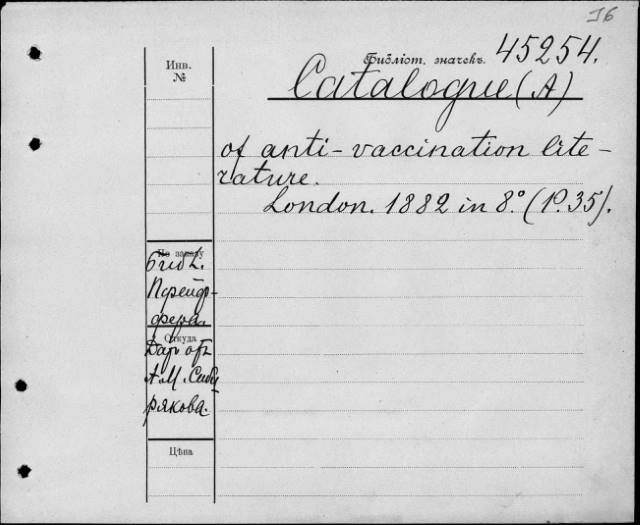 I6
Библіот. значекъ. 45254.
Инв.
№
Catalogue (A)
of anti-vaccination lite-
rature.
London. 1882 in 8.° (P. 35).
По заказу
библ.
Пфейф-
фера.
Откуда
Даръ отъ
А. М. Сиби
рякова.
Цѣна